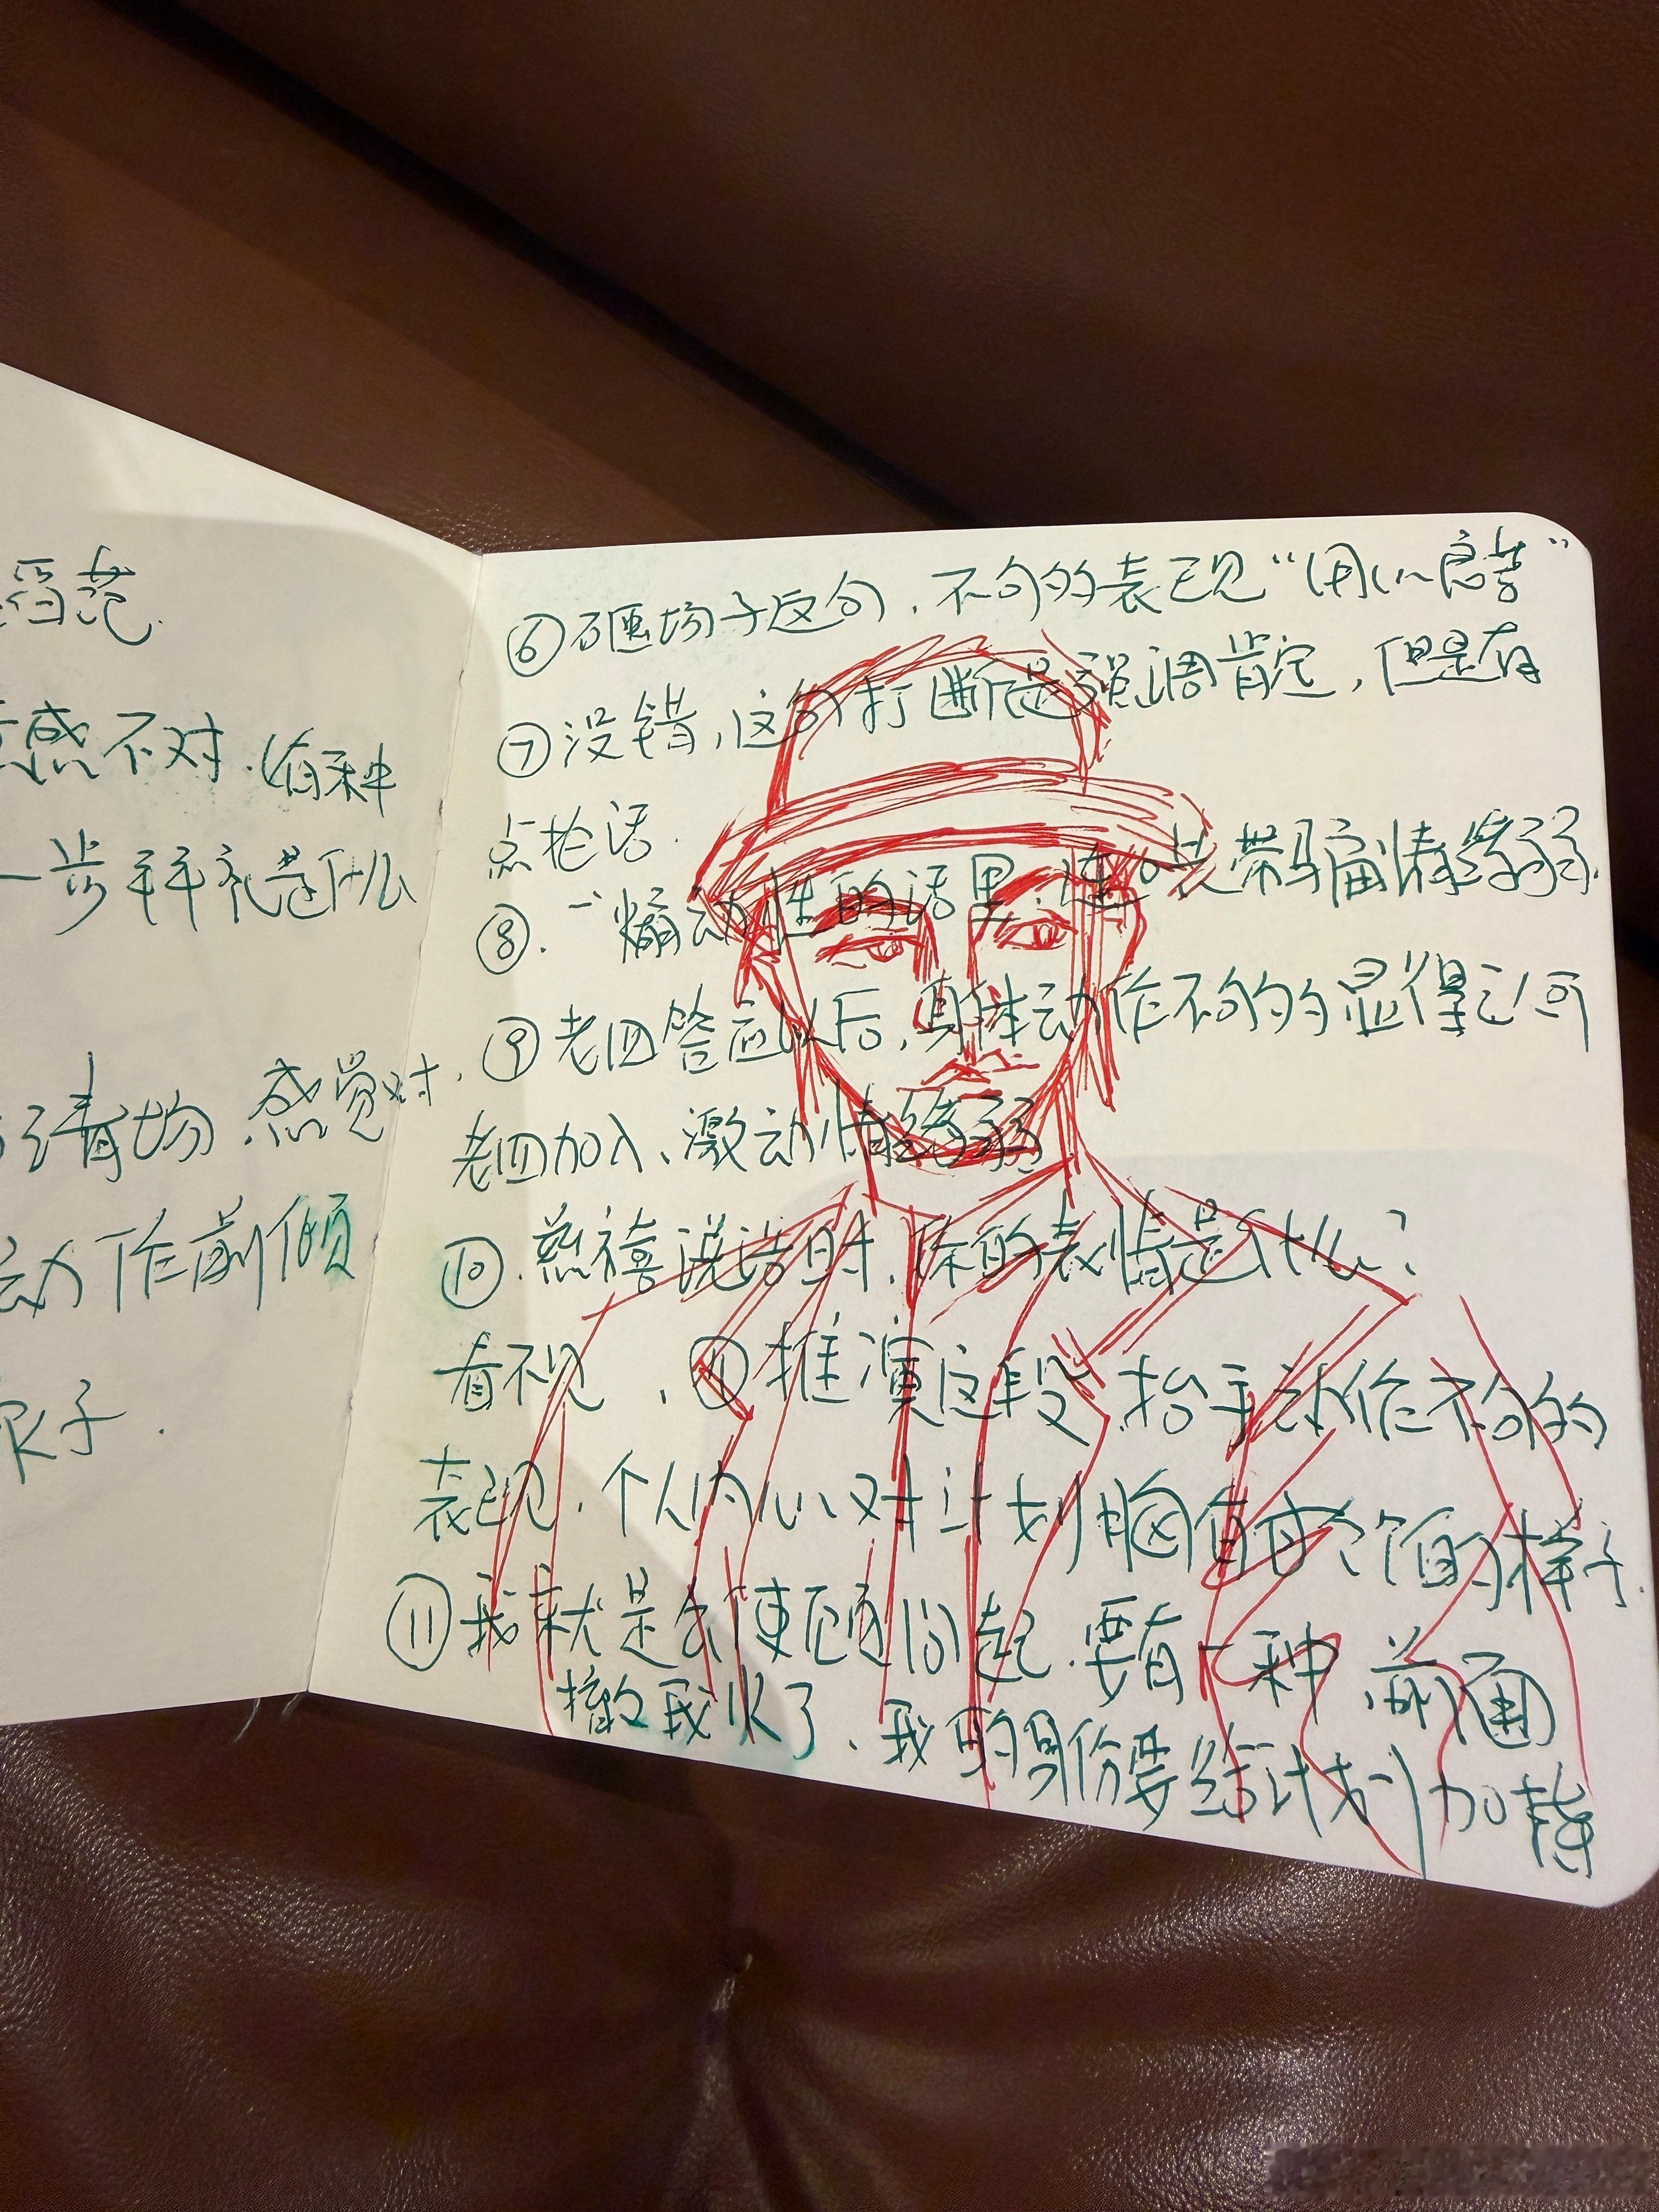 范
感不对.有种
一步拜礼是什么
清场.感觉对.
动作前倾
子.
⑥砸场子这句.不句的表现“用心良苦”
⑦没错,这句打断是强调肯定,但是有
点抢话.
⑧.一煽动性的话里.连哄带骗情绪弱.
⑨老四答应以后,身体动作不句的显得认可
老四加入、激动情绪弱
⑩.慈禧说话时.你的表情是什么?
看不见、推演这段.抬手动作不句的
表现.个人内心对计划胸有的样子.
⑪我就是大使顾问起.要有一种前面
我火了.我的身份要给计划加